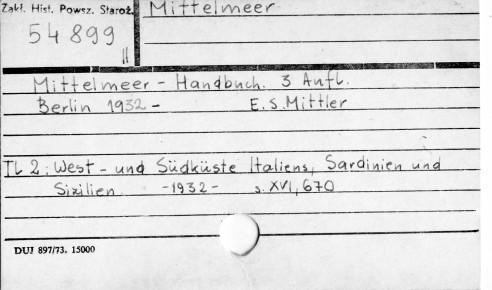 Zakł. Hist. Powsz. Staroż.
Mittelmeer
54899
II
Mittelmeer - Handbuch. 3 Aufl.
Berlin 1932 - E.S. Mittler
TL 2: West - und Südküste Italiens, Sardinien und
Sizilien -1932- s. XVI, 670
DUJ 897/73. 15000